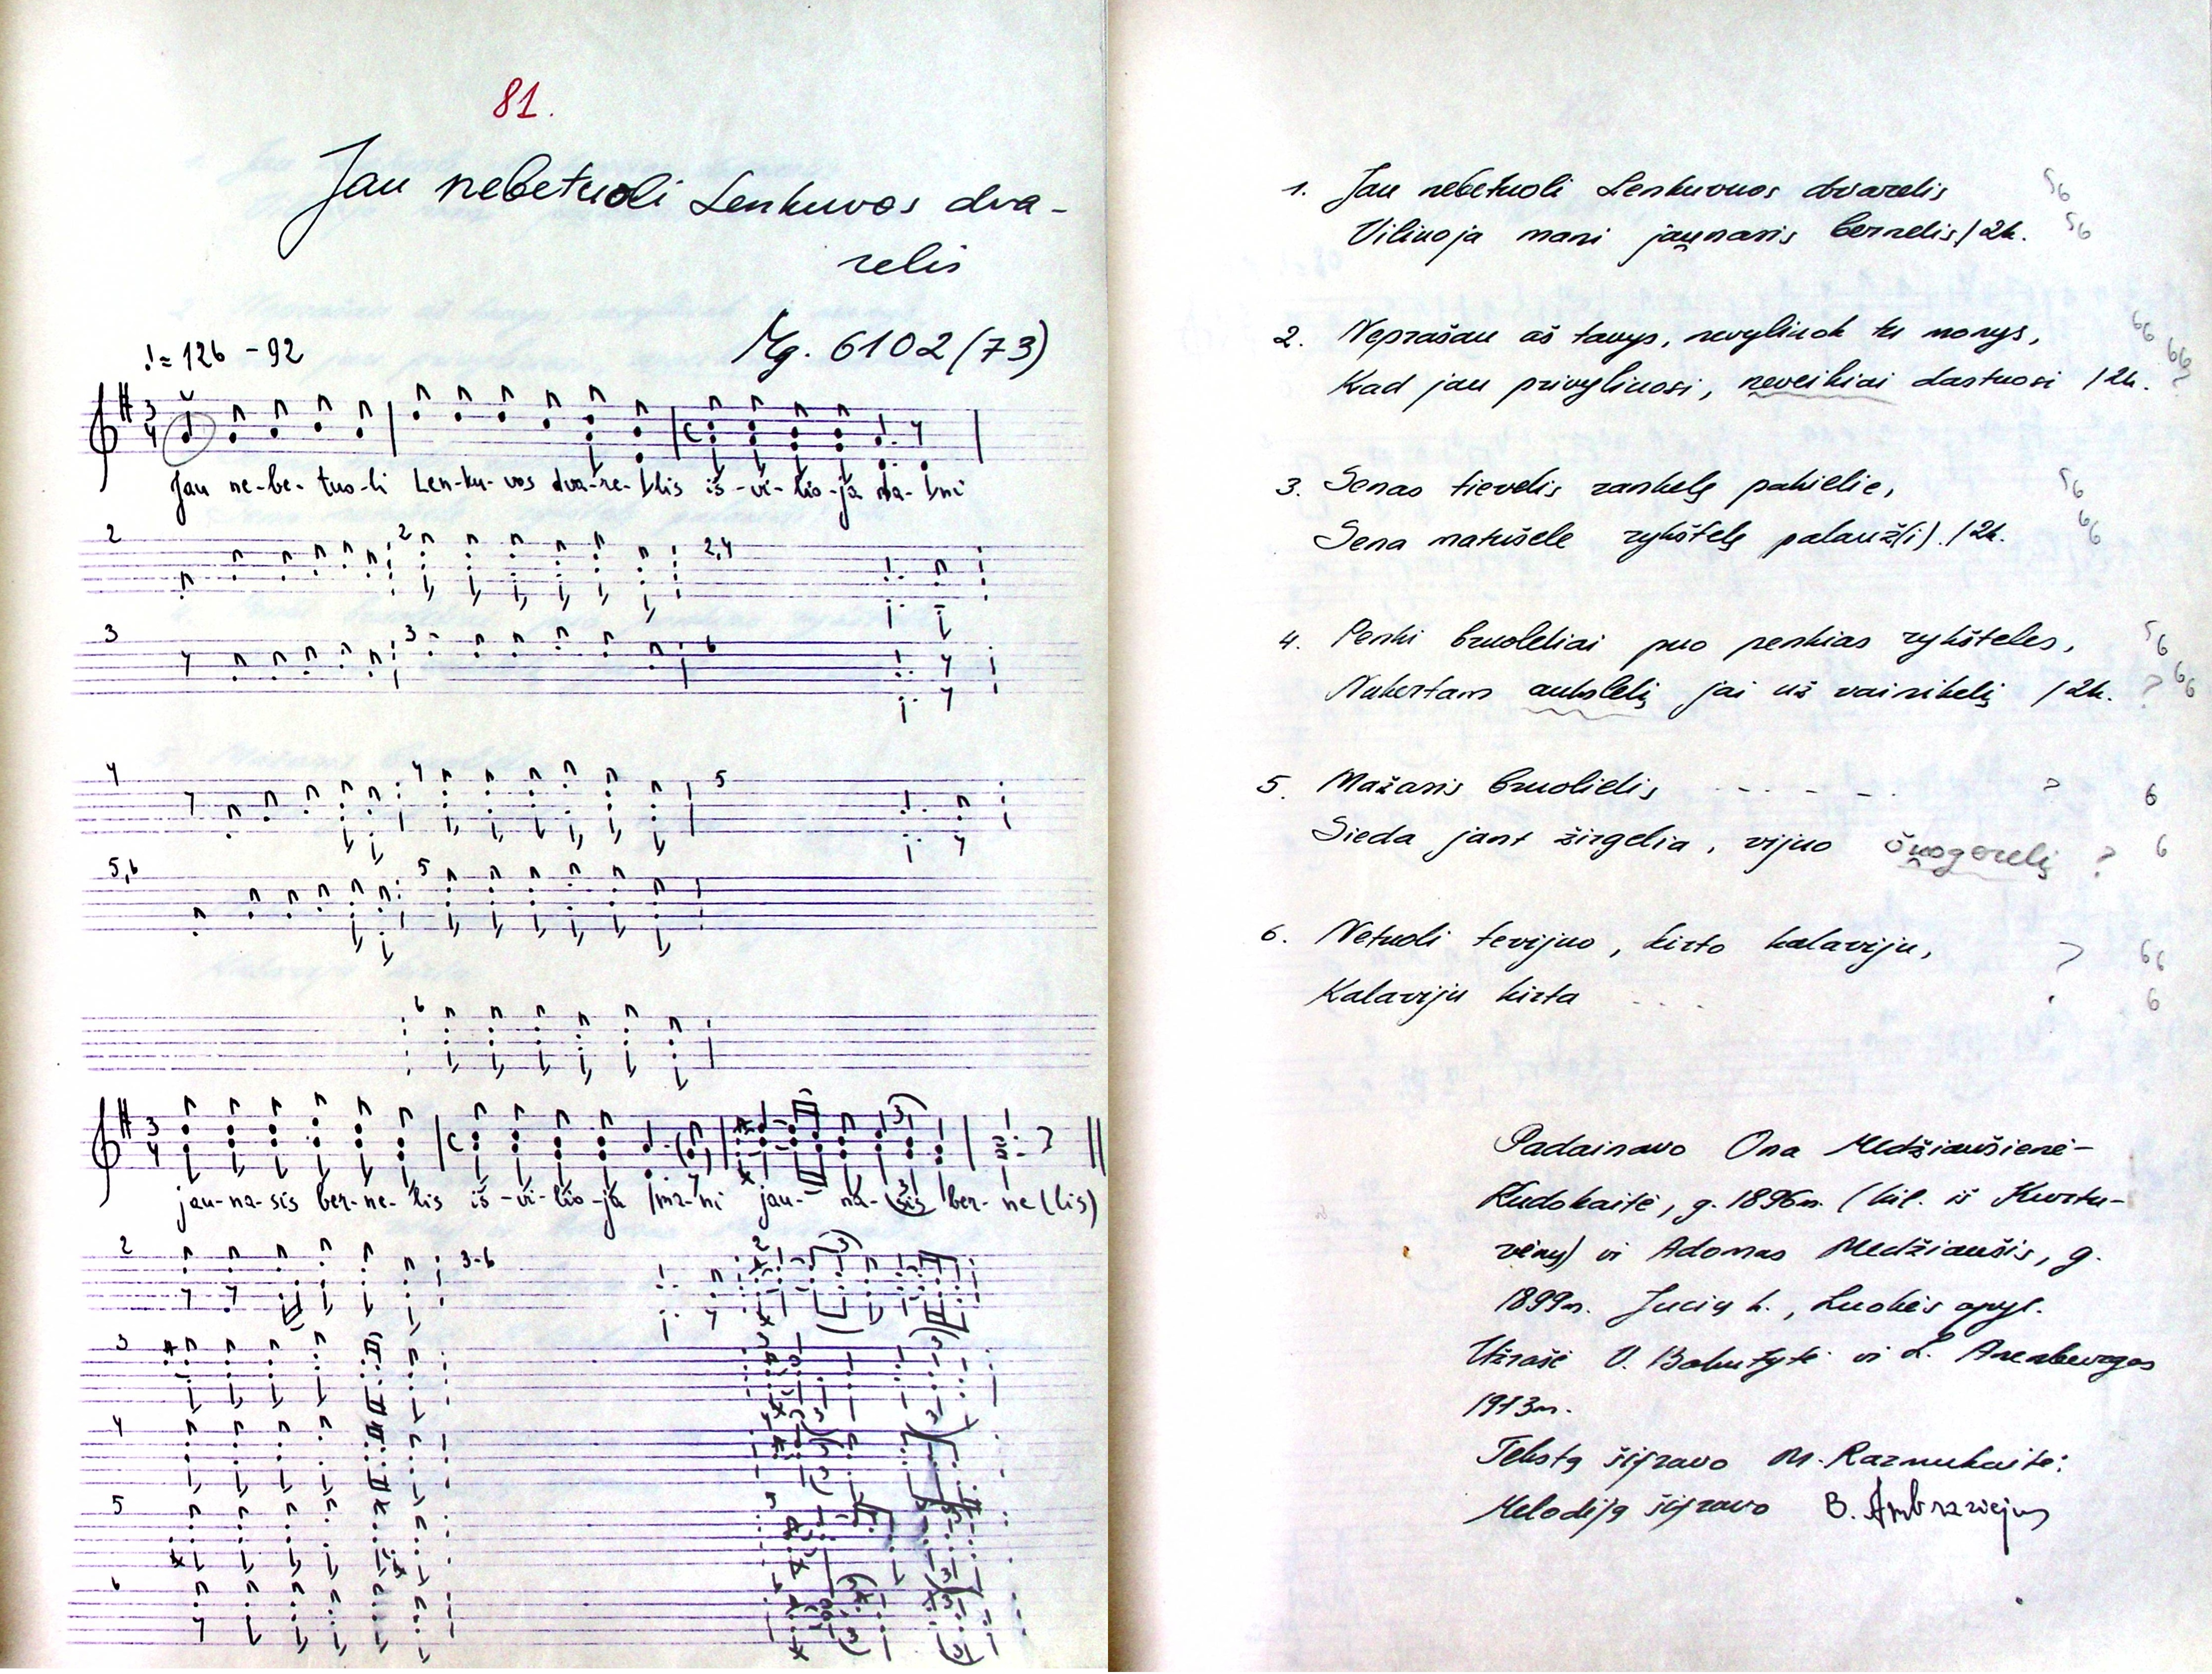 81.
Jau nebetuoli Lenkuvos dva-
relis
Mg. 6102 (73)
126 - 92
Jau ne-be-tuo-li Len-ku-vos dva-re-lis iš-vi-lio-ja ma-ni
2 2 2,4
3 3 6
4 4 5
5,6 5
6
jau-na-sis ber-ne-lis iš-vi-lio-ja ma-ni jau- na-sis ber-ne(lis)
2 3-6 2
3 3
4 4
5 5
6 6
1. Jau nebetuoli Lenkuvuos dvarelis 56
Viliuoja mani jaunasis bernelis /2k. 56
2. Neprašau aš tavys, nevyliuok tu monys, 66
Kad jau privyliuosi, neveikiai dastuosi /2k. ? 66
3. Senas tievelis rankelę pakielie, 56
Sena matušele rykštelę palauž(i). /2k. 66
4. Penki bruoleliai puo penkias rykšteles, 56
Nukertam auksleli jai už vainikelį /2k. ? 66
5. Mažasis bruolielis - - - - - ? 6
Sieda jant žirgelia, vijuo ? 6
6. Netuoli tevijuo, kirto kalaviju, ? 66
Kalaviju kirta .... 6
Padainavo Ona Medžiaušienė-
Kudokaitė, g. 1896m. (kil. iš Kurtu-
vėnų) ir Adomas Medžiaušis, g.
1899m. Jucių k., Luokės apyl.
Užrašė V. Bakutytė ir L.
1973m.
Tekstą šifravo M. Razmukaitė;
Melodiją šifravo B. Ambraziejus